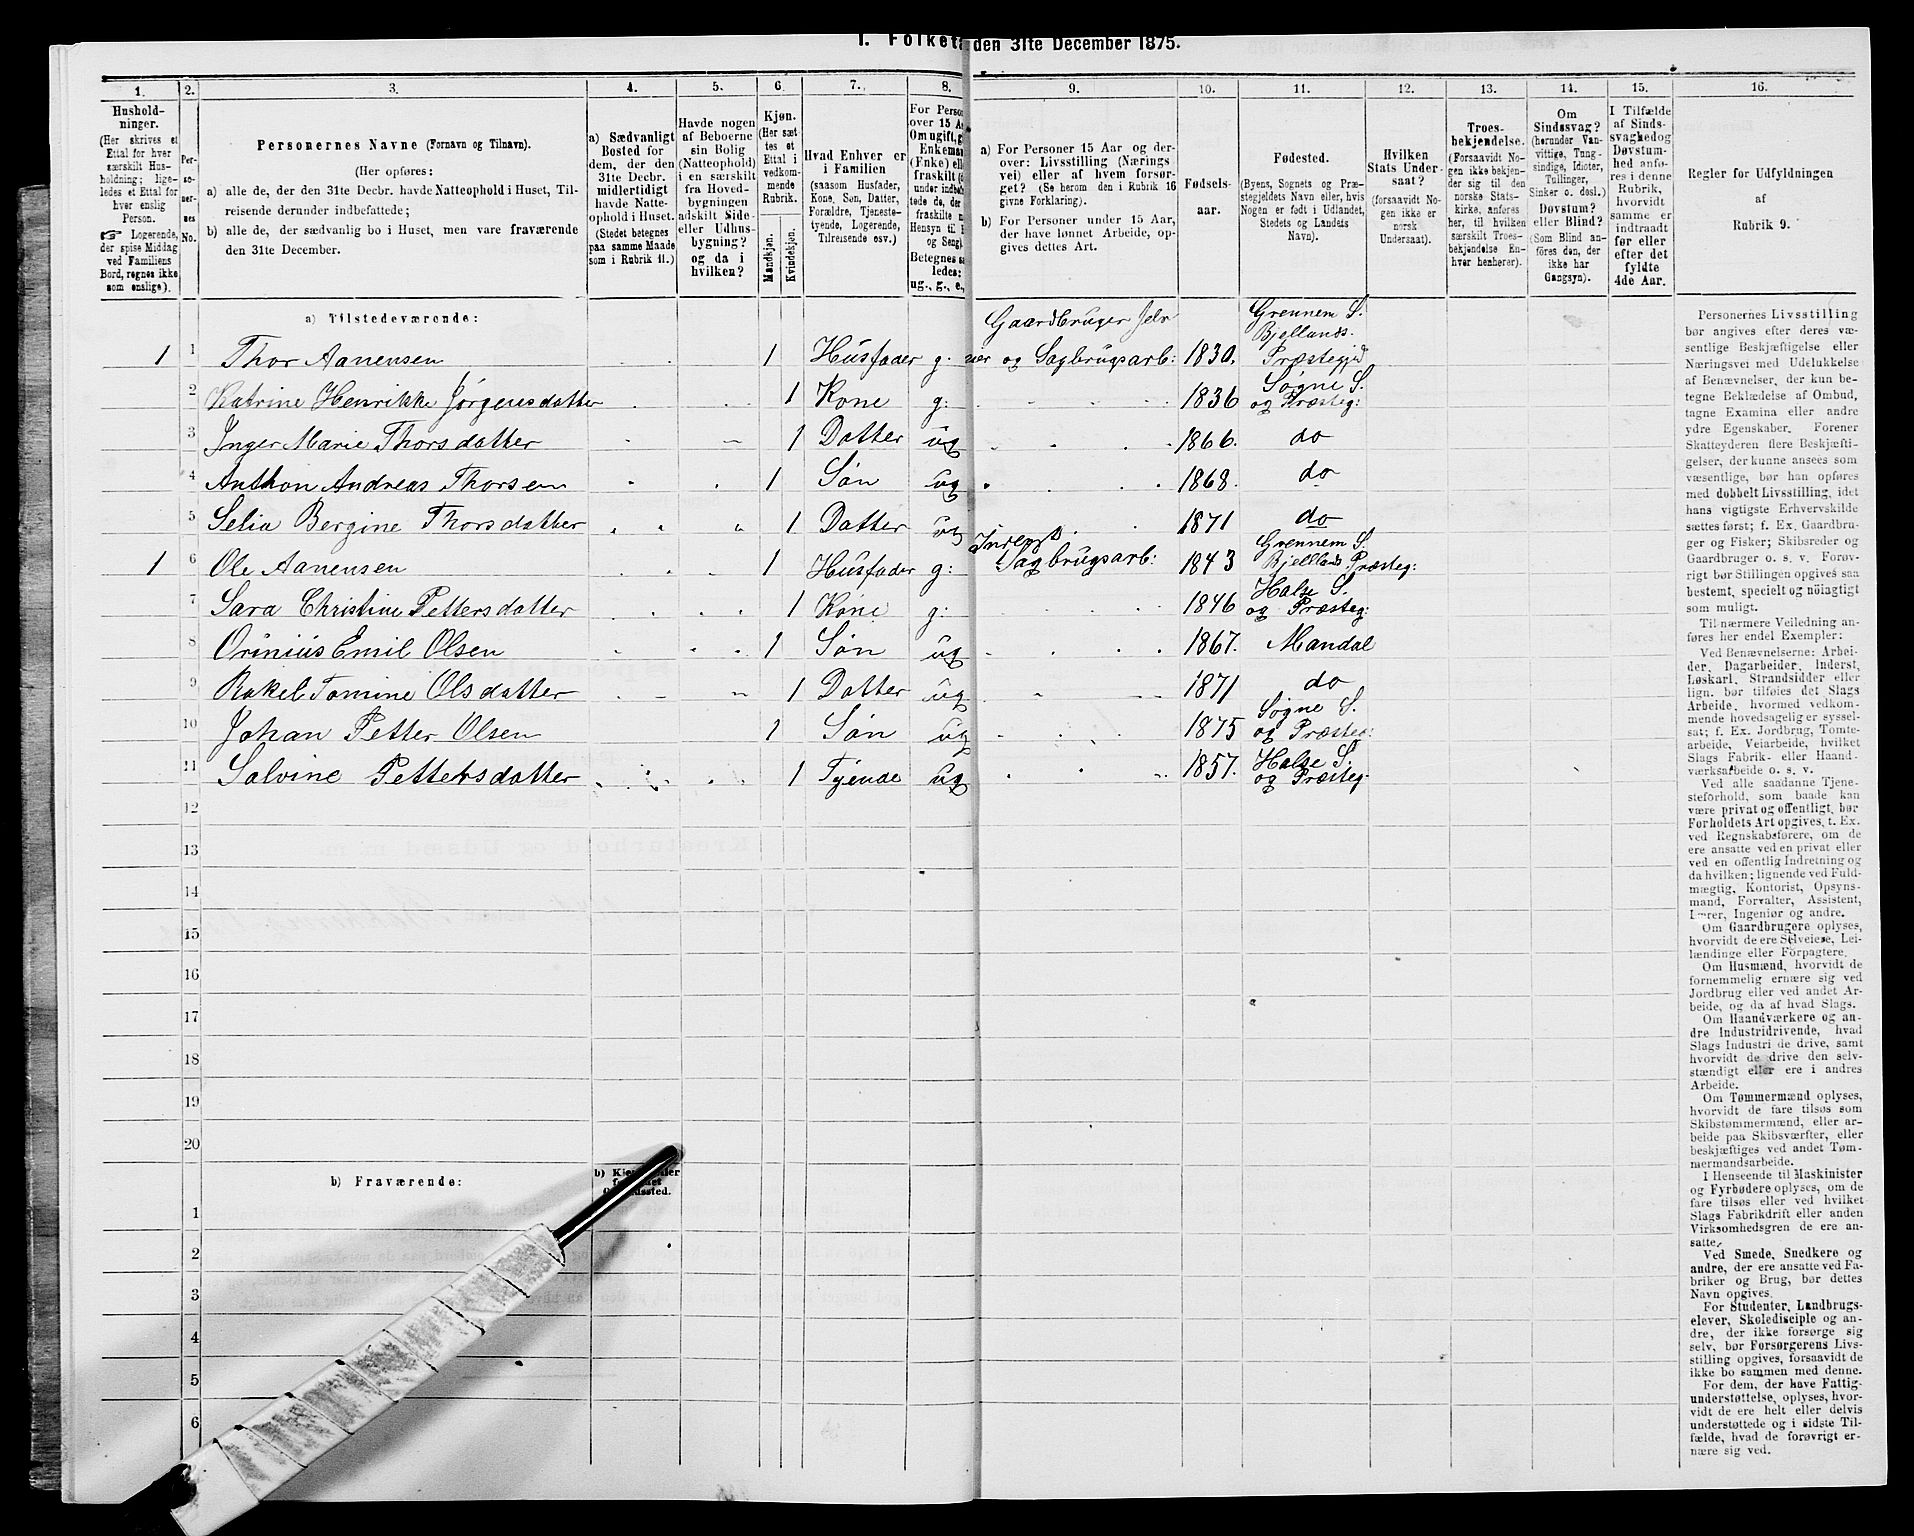 1. Folket den 31te December 1875.
1.
Hushold-
ninger.
(Her skrives et
Ettal for hver
særskilt Hus-
holdning; lige-
ledes et Ettal for
hver enslig
Person.
☞ Logerende,
der spise Middag
ved Familiens
Bord, regnes ikke
som enslige).
2.
Per-
so-
ner-
nes
No.
3.
Personernes Navne (Fornavn og Tilnavn).
(Her opføres:
a) alle de, der den 31te Decbr. havde Natteophold i Huset, Til-
reisende derunder indbefattede;
b) alle de, der sædvanlig bo i Huset, men vare fraværende
den 31te December.
4.
a) Sædvanligt
Bosted for
dem, der den
31te Decbr.
midlertidigt
havde Natte-
ophold i Huset.
(Stedet betegnes
paa samme Maade
som i Rubrik 11.)
5.
Havde nogen
af Beboerne
sin Bolig
(Natteophold)
i en særskilt
fra Hoved-
bygningen
adskilt Side-
eller Udhus-
bygning?
og da i
hvilken?
6.
Kjøn.
(Her sæt-
tes et
Ettal i
vedkom-
mende
Rubrik.
Mandkjøn.
Kvindekjøn.
7.
Hvad Enhver er
i Familien
(saasom Husfader,
Kone, Søn, Datter,
Forældre, Tjeneste-
tyende, Logerende,
Tilreisende osv.)
8.
For Perso
over 15 A
Om ugift, g
Enkeman
(Fnke) ell
fraskilt
under indbef
tede de, der
fraskilte
Hensyn til
og Seng)
Betegnes s
ledes:
ug., g., e.,
9.
a) For Personer 15 Aar og der-
over: Livsstilling (Nærings-
vei) eller af hvem forsør-
get? (Se herom den i Rubrik 16
givne Forklaring).
b) For Personer under 15 Aar,
der have lønnet Arbeide, op-
gives dettes Art.
10.
Fødsels-
aar.
11.
Fødested.
(Byens, Sognets og Præ-
stegjeldets Navn eller, hvis
Nogen er født i Udlandet,
Stedets og Landets
Navn).
12.
Hvilken
Stats Under-
saat?
(forsaavidt No-
gen ikke er
norsk
Undersaat).
13.
Troes-
bekjendelse.
(Forsaavidt No-
gen ikke bekjen-
der sig til den
norske Stats-
kirke, anføres
her, til hvilken
særskilt Troes-
bekjendelse En-
hver henhører).
14.
Om
Sindssvag?
(herunder Van-
vittige, Tung-
sindige, Idioter,
Tullinger,
Sinker o. desl.)
Døvstum?
eller Blind?
(Som Blind an-
føres den, der
ikke har
Gangsyn).
15.
I Tilfælde
af Sinds-
svaghed og
Døvstum-
hed anfø-
res i denne
Rubrik,
hvorvidt
samme er
indtraadt
før eller
efter det
fyldte
4de Aar.
16.
Regler for Udfyldningen
af
Rubrik 9.
a) Tilstedeværende:
1 1 Thor Aanensen 1 Husfader g: Gaardbruger Selv eier og Sagbrugsarb: 1830. Grennem S. Bjellands. Præstegjd
2 Katrine Henrikke Jørgensdatter 1 Kone g: 1836 Søgne S. og Præsteg:
3 Inger Marie Thorsdatter 1 Datter ug 1866. do
4 Anthon Andreas Thorsen 1 Søn ug 1868. do
5 Selia Bergine Thorsdatter 1 Datter ug 1871 do
1 6 Ole Aanensen 1 Husfader g: Inderst Sagbrugsarb: 1843 Grennem S. Bjellands Præsteg:
7 Sara Christine Pettersdatter 1 Kone g: 1846 Halse S. og Præsteg:
8 Orinius Emil Olsen 1 Søn ug 1867. Mandal
9 Rakel Tomine Olsdatter 1 Datter ug 1871 do
10 Johan Petter Olsen 1 Søn ug 1875 Søgne S. og Præsteg:
11 Salvine Pettersdatter 1 Tyende ug 1857. Halse S. og Præsteg:
12
13
14
15
16
17
18
19
20
b) Fraværende:
1
2
3
4
5
6
Personernes Livsstilling
bør angives efter deres væ-
sentlige Beskjæftigelse eller
Næringsvei med Udelukkelse
af Benævnelser, der kun be-
tegne Beklædelse af Ombud,
tagne Examina eller andre
ydre Egenskaber. Forener
Skatteyderen flere Beskjæfti-
gelser, der kunne ansees som
væsentlige, bør han opføres
med dobbelt Livsstilling, idet
hans vigtigste Erhvervskilde
sættes først; f. Ex. Gaardbru-
ger og Fisker; Skibsreder og
Gaardbruger o. s. v. Forøv-
rigt bør Stillingen opgives saa
bestemt, specielt og nøiagtigt
som muligt.
Til nærmere Veiledning an-
føres her endel Exempler:
Ved Benævnelserne: Arbei-
der, Dagarbeider, Inderst,
Løskarl, Strandsidder eller
lign. bør tilføies det Slags
Arbeide, hvormed vedkom-
mende hovedsagelig er syssel-
sat; f. Ex. Jordbrug, Tomte-
arbeide, Veiarbeide, hvilket
Slags Fabrik- eller Haand-
værksarbeide o. s. v.
Ved alle saadanne Tjene-
steforhold, som baade kan
være privat og offentligt, bør
Forholdets Art opgives, t. Ex.
ved Regnskabsførere, om de
ere ansatte ved en privat eller
ved en offentlig Indretning og
da hvilken; lignende ved Fuld-
mægtig, Kontorist, Opsyns-
mand, Forvalter, Assistent,
Lærer, Ingeniør og andre.
Om Gaardbrugere oplyses,
hvorvidt de ere Selveiere, Lei-
lændinge eller Forpagtere.
Om Husmænd, hvorvidt de
fornemmelig ernære sig ved
Jordbrug eller ved andet Ar-
beide, og da af hvad Slags.
Om Haandværkere og an-
dre Industridrivende, hvad
Slags Industri de drive, samt
hvorvidt de drive den selv-
stændigt eller ere i andres
Arbeide.
Om Tømmermænd oplyses,
hvorvidt de fare tilsøs som
Skibstømmermænd, eller ar-
beide paa Skibsværfter, eller
beskjæftiges ved andet Tøm-
mermandsarbeide.
I Henseende til Maskinister
og Fyrbødere oplyses, om de
fare tilsøs eller ved hvilket
Slags Fabrikdrift eller anden
Virksomhedsgren de ere an-
satte.
Ved Smede, Snedkere og
andre, der ere ansatte ved Fa-
briker og Brug, bør dettes
Navn opgives.
For Studenter, Landbrugs-
elever, Skoledisciple og an-
dre, der ikke forsørge sig
selv, bør Forsørgerens Livs-
stilling opgives, forsaavidt de
ikke bo sammen med denne.
For dem, der have Fattig-
understøttelse, oplyses, hvor-
vidt de ere helt eller delvis
understøttede og i sidste Til-
fælde, hvad de forøvrigt er-
nære sig ved.